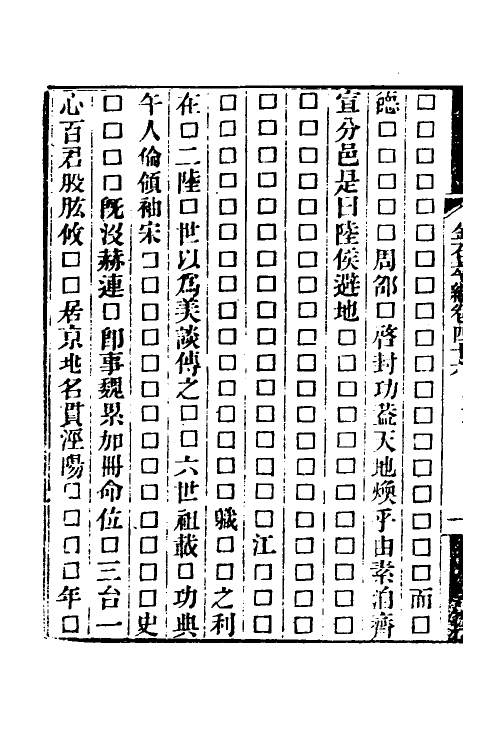 金石萃編卷四十六 一
□□□□□□□□□□□□□□□□□□□而□
德□□□□□周邵□啓封功葢天地煥乎由素洎齊
宣分邑是曰陸侯避地□□□□□□□□□□□□
□□□□□□□□□□□□□□□□□□□□□
□□□□□□□□□□□□□□□□□江□□□
□□□□□□□□□□□□□□□□職□□之利
在□二陸□世以爲美談傳之□□六世祖載□功典
午人倫領袖宋□□□□□□□□□□□□□□史
□□□□旣沒赫連□卽事魏累加冊命位□三台一
心百君股肱攸□□居京兆名貫涇陽□□□□年□